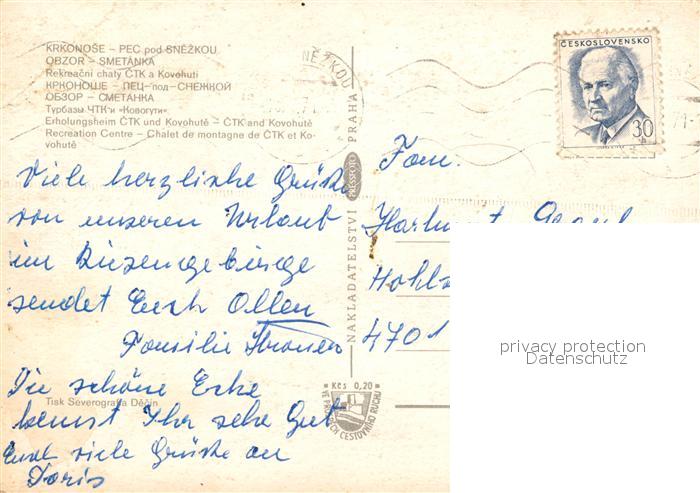 KRKONOŠE – PEC pod SNĚŽKOU
OBZOR – SMETÁNKA
Rekreační chaty ČTK a Kovohutí
КРКОНОШЕ – ПЕЦ-под-СНЕЖКОЙ
ОБЗОР – СМЕТАНКА
Турбазы ЧТК и «Ковогути»
Erholungsheim ČTK und Kovohutě – ČTK and Kovohutě
Recreation Centre – Chalet de montagne de ČTK et Ko-
vohutě
Viele herzliche Grüße
von unseren Urlaub
im Riesengebirge
sendet Euch Ollen
Familie
Die schöne Ecke
kennt Ihr sehr Gut
Euch viele Grüße an
Doris
Tisk Severografia Děčín
NĚŽKOU
NAKLADATELSTVÍ PRESSFOTO PRAHA
Kčs 0,20
VE PROSPĚCH CESTOVNÍHO RUCHU
ČESKOSLOVENSKO
30
h
71
Fam.
4701
privacy protection
Datenschutz